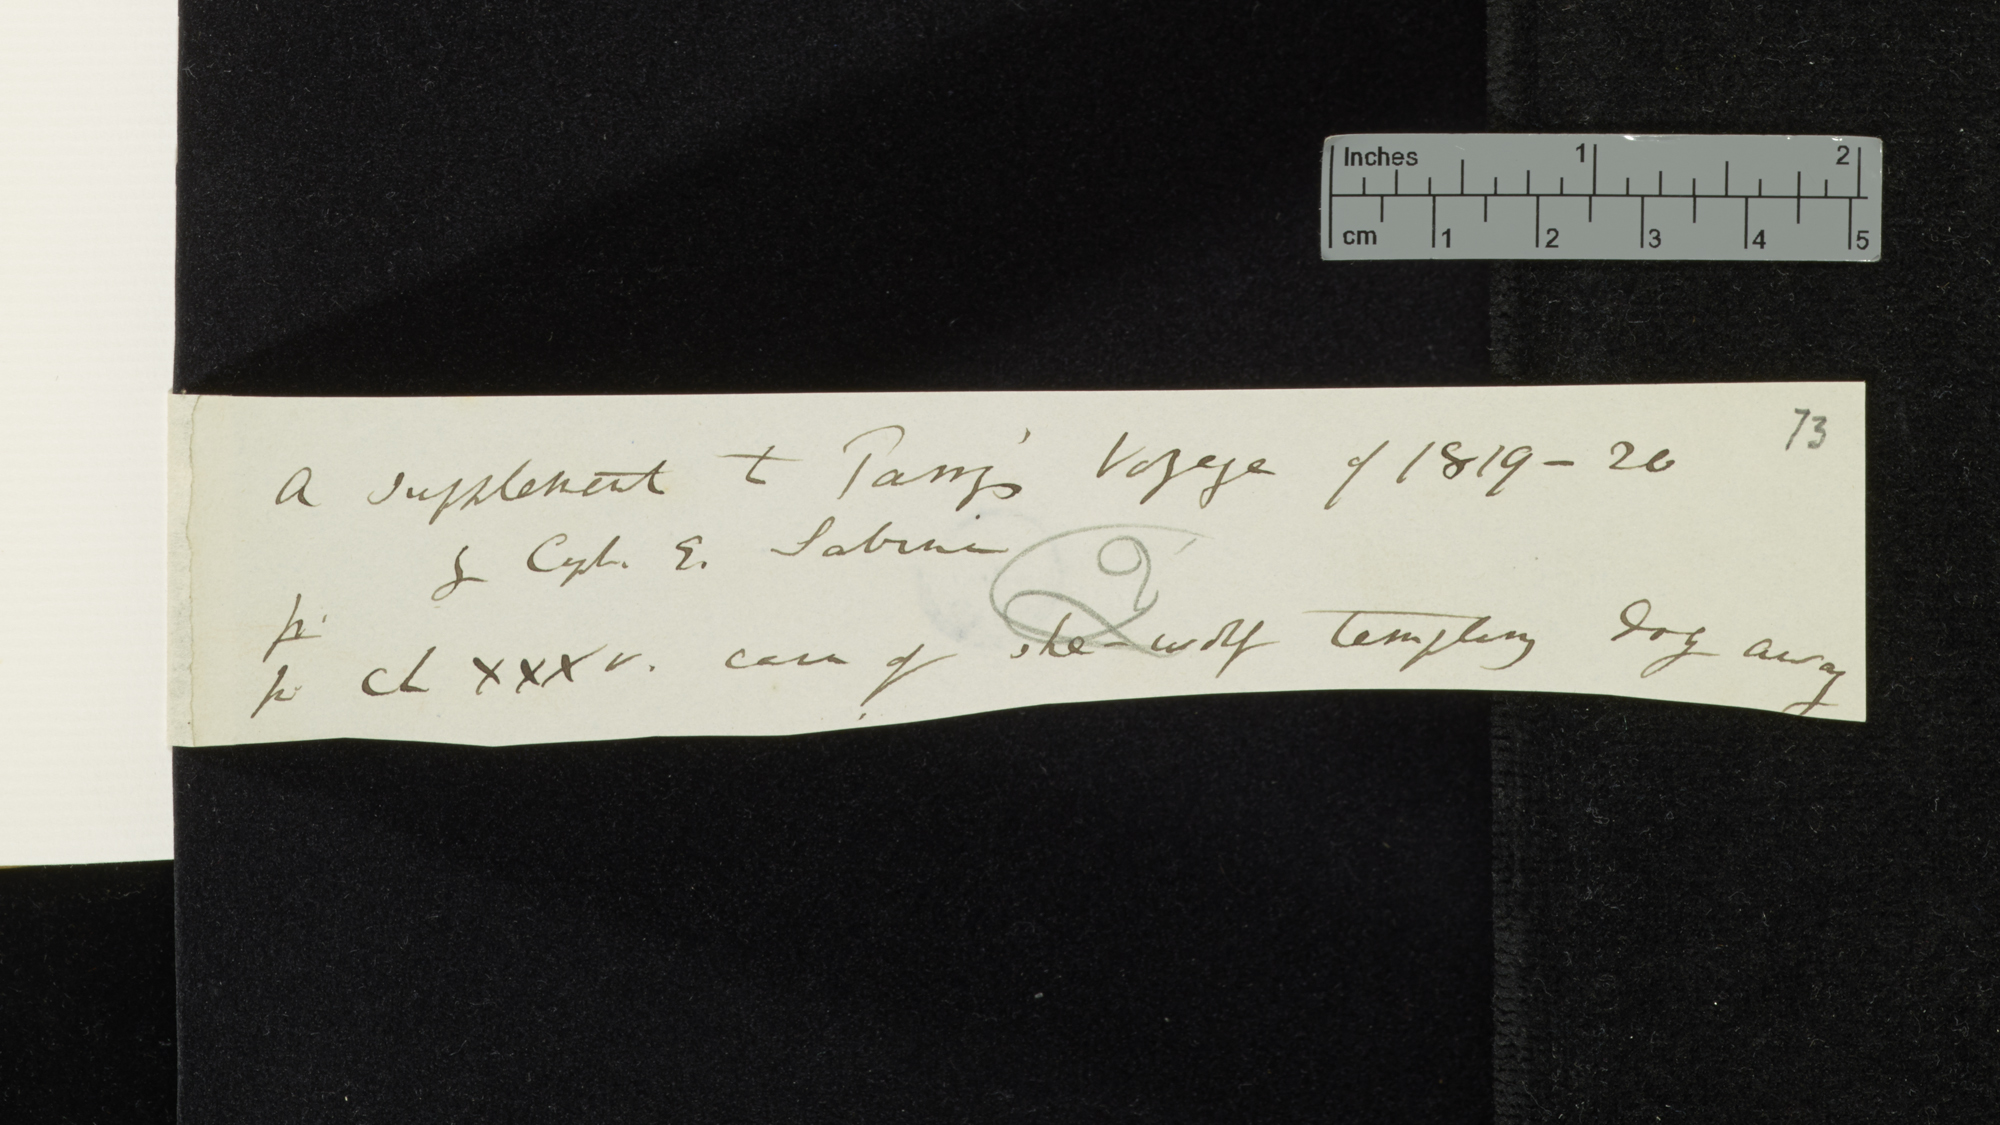 Inches 1 2
cm 1 2 3 4 5
73
A supplement to Parry's Voyage of 1819–20
by Capt. E. Sabine
2
p.
p ch XXXV. case of she-wolf tempting dog away